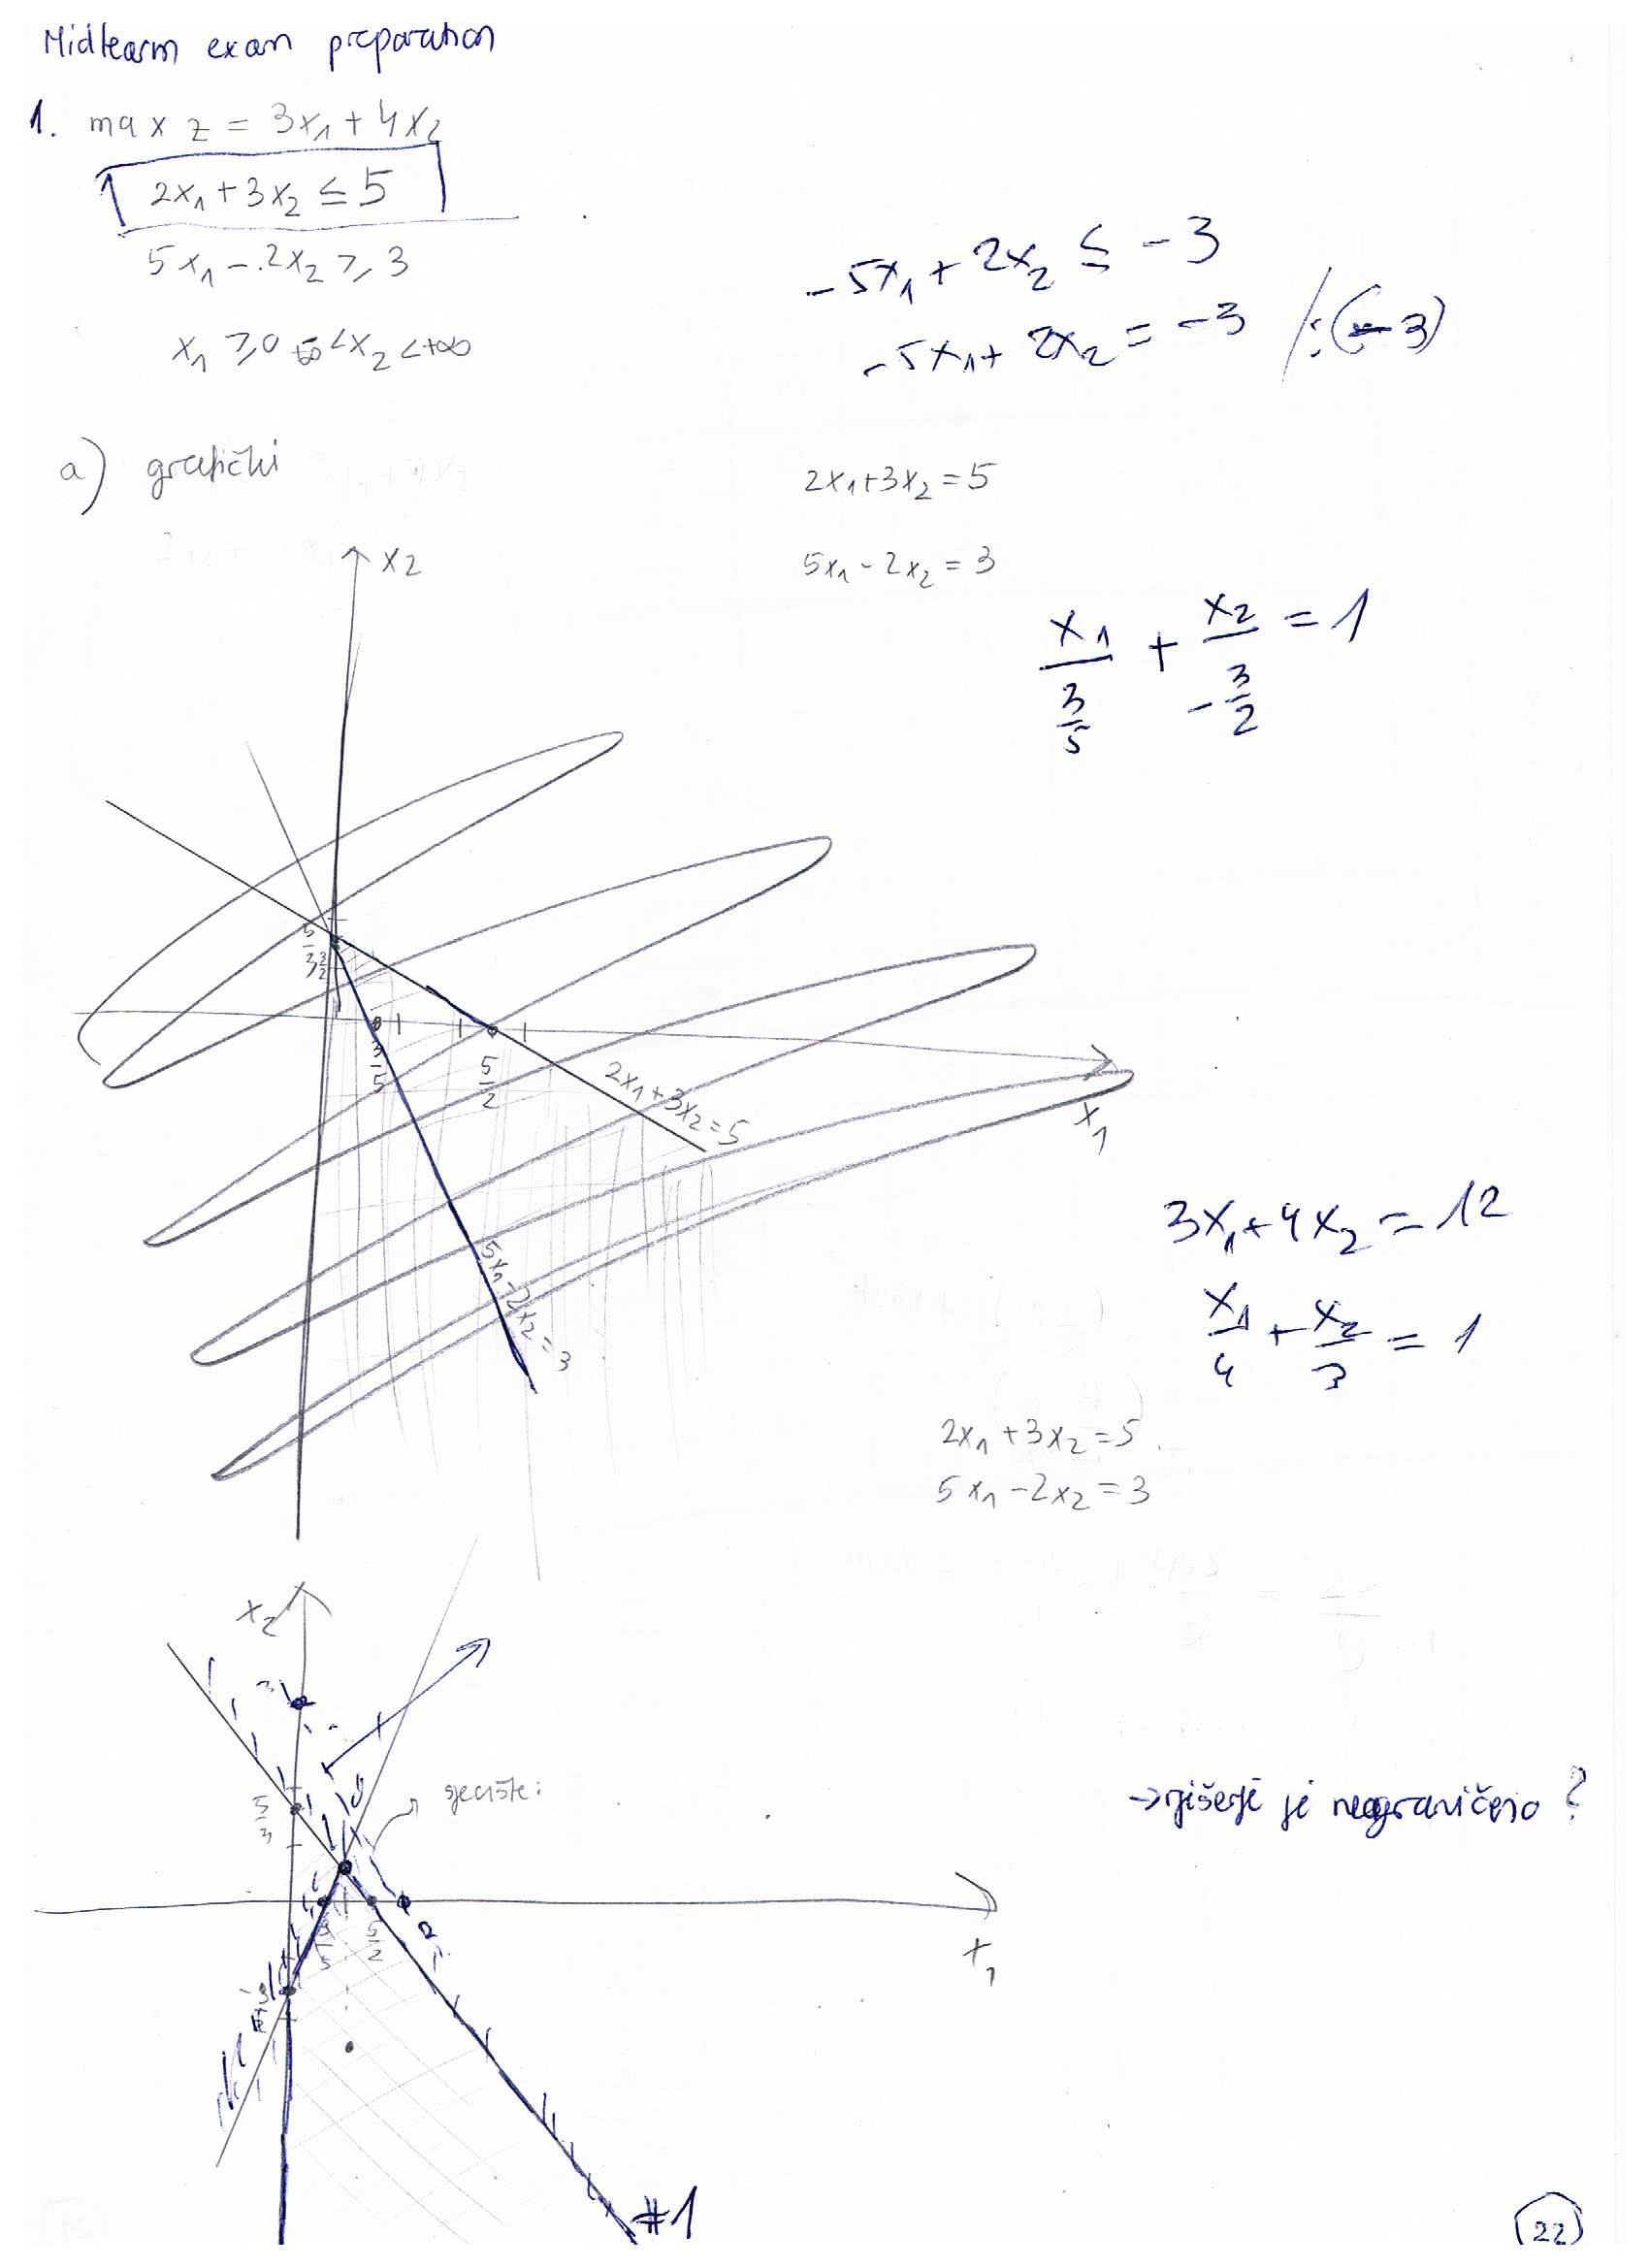 Midtearm exam preparation
1. max z = 3x₁ + 4x₂
2x₁ + 3x₂ ≤ 5
5x₁ - 2x₂ ≥ 3
x₁ ≥ 0 -∞ < x₂ < +∞
-5x₁ + 2x₂ ≤ -3
-5x₁ + 2x₂ = -3 /:(-3)
a) grafički
2x₁ + 3x₂ = 5
5x₁ - 2x₂ = 3
x₁/(3/5) + x₂/(-3/2) = 1
x₂
5/3
3/2
1
3/5
5/2
2x₁ + 3x₂ = 5
x₁
5x₁ - 2x₂ = 3
3x₁ + 4x₂ = 12
x₁/4 + x₂/3 = 1
2x₁ + 3x₂ = 5
5x₁ - 2x₂ = 3
x₂
3
5/3
sjecište:
→ rješenje je neograničeno?
3/5
5/2
x₁
#1
22